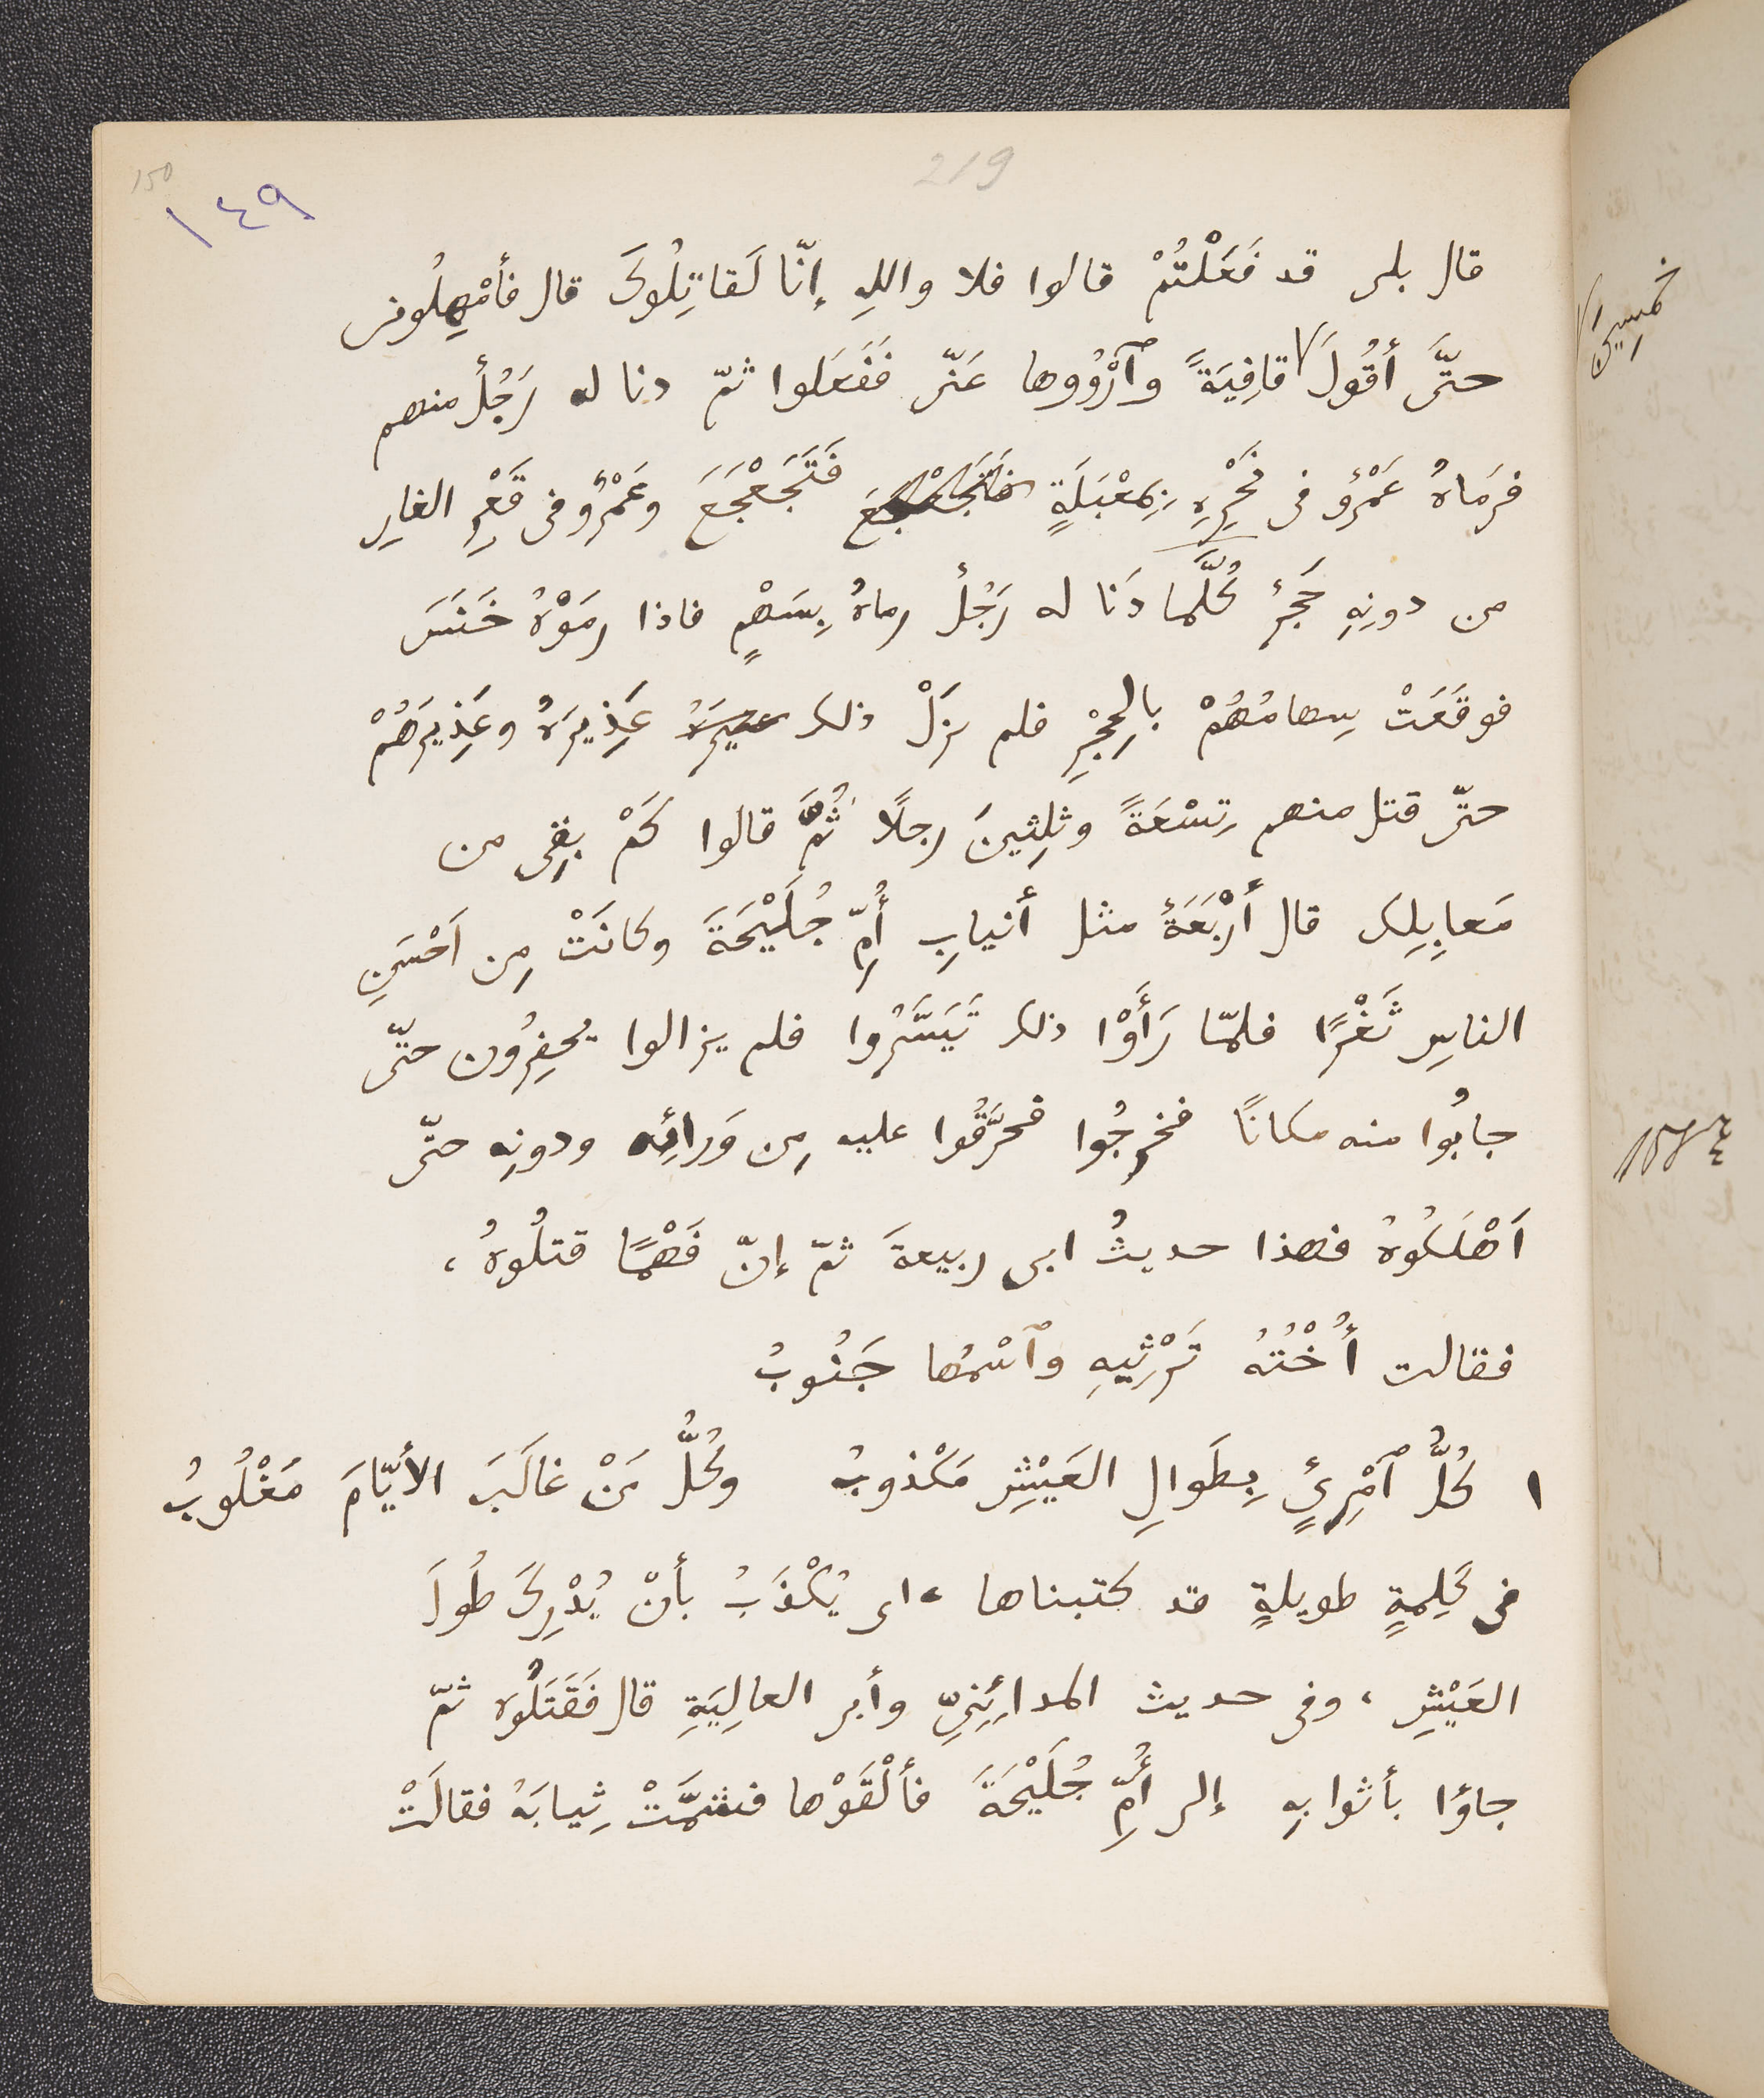 219
150
١٤٩
قال بلى قد فَعَلْتُمْ قالوا فلا واللهِ إنّا لَقاتِلُوكَ قال فأمْهِلُونى
حتَّى أقُولَ قافِيَةً وٱرْوُوها عَنّى فَفَعَلوا ثمّ دنا له رَجُلٌ منهم
فرَماهُ عَمْرٌو فى نَحْرِهِ بِمِعْبَلَةٍ فَتَجَعْجَعَ وعَمْرٌو فى قَعْرِ الغارِ
من دونِهِ حَجَرٌ كُلَّما دَنا له رَجُلٌ رماهُ بِسَهْمٍ فاذا رمَوْهُ خَنَسَ
فوقَعَتْ سِهامُهُمْ بالحِجْرِ فلم يزَلْ ذلك عَذِيرَهُ وعَذِيرَهُمْ
حتّى قتل منهم تِسْعَةً وثلِثينَ رجلًا ثُمَّ قالوا كَمْ بقِى من
مَعابِلِك قال أرْبَعَةٌ مثل أنيابِ أُمِّ جُلَيْحَةَ وكانَتْ مِن اَحْسَنِ
الناسِ ثَغْرًا فلمّا رَأَوْا ذلك تَيَسَّرُوا فلم يزالوا يحفِرُون حتّى
جابُوا منه مكانًا فخرجُوا فحرَّقُوا عليه مِن وَرائِه ودونِه حتّى
اَهْلَكُوهُ فهذا حديثُ ابى ربيعةَ ثمّ إنّ فَهْمًا قتلُوهُ ،
فقالت أُخْتُهُ تَرْثِيهِ وٱسْمُها جَنُوبُ
١ كُلُّ ٱمْرِئٍ بِطَوالِ العَيْشِ مَكْذوبُ وكُلُّ مَنْ غالَبَ الأيّامَ مَغْلُوبُ
فى كَلِمةٍ طويلةٍ قد كتبناها ، اى يُكْذَبُ بأنْ يُدْرِكَ طُولَ
العَيْشِ ، وفى حديث المدائِنِىِّ وأبى العالِيَةِ قال فَقَتَلُوه ثمّ
جاؤا بأثوابِهِ إلى أُمِّ جُلَيْحَةَ فألْقَوْها فشمَّتْ ثِيابَهُ فقالَتْ